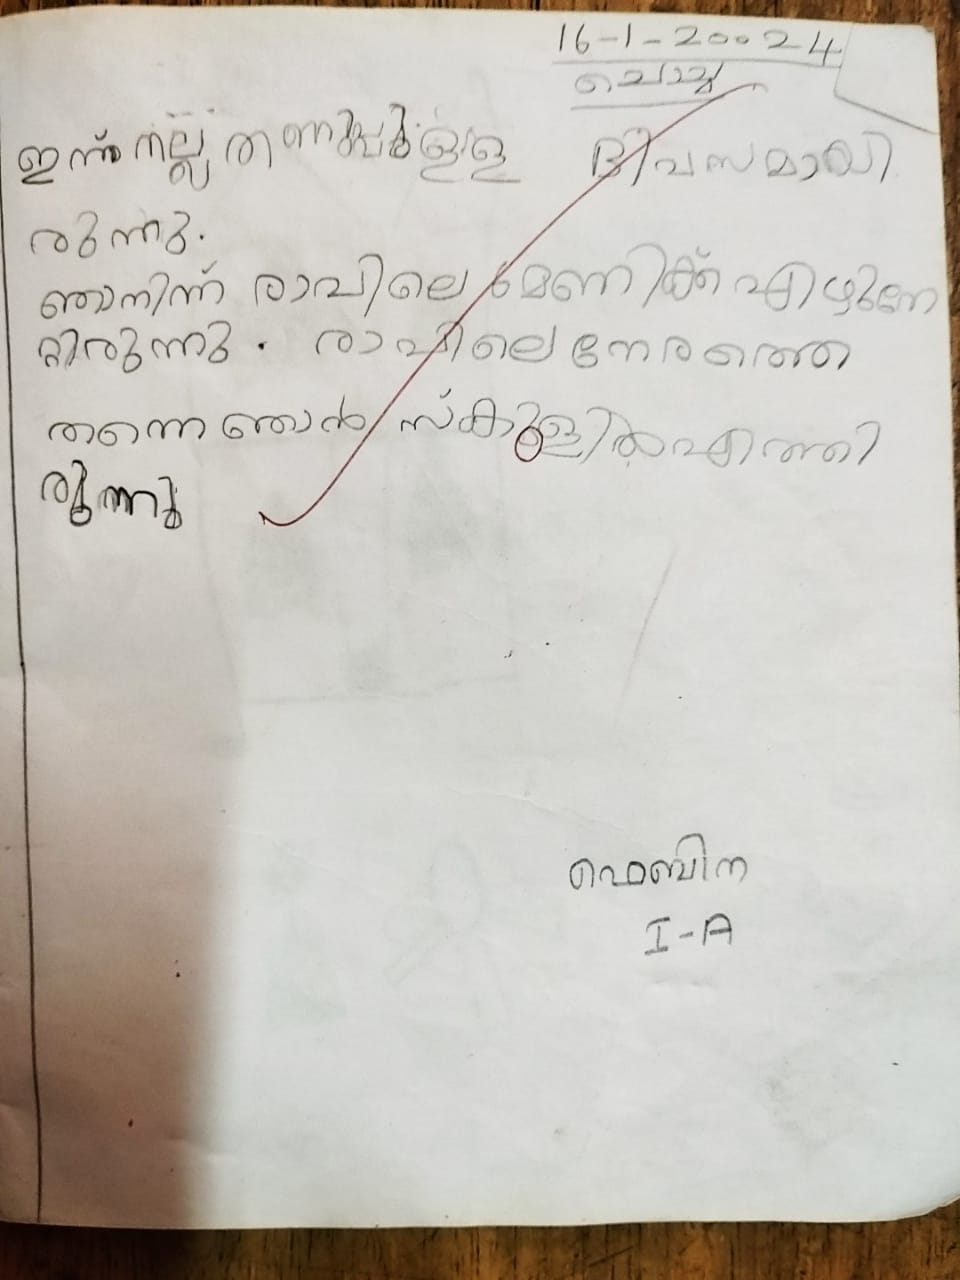 16-1-20024
ചൊവ്വ
ഇന്ന് നല്ല തണുപ്പുള്ള ദിവസമായി
രുന്നു.
ഞാനിന്ന് രാവിലെ 6 മണിക്ക് എഴുന്നേ
റ്റിരുന്നു. രാവിലെ നേരത്തെ
തന്നെ ഞാൻ സ്കുളിൽ എത്തി
രുന്നു
ഫെബിന
I-A